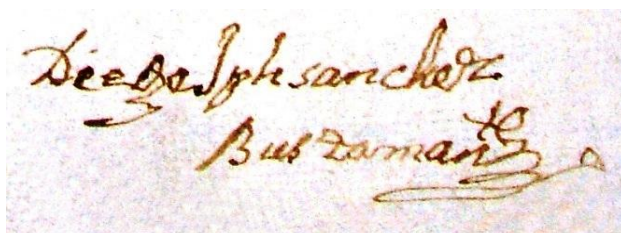 Diego Jph sanchez
Bustamante